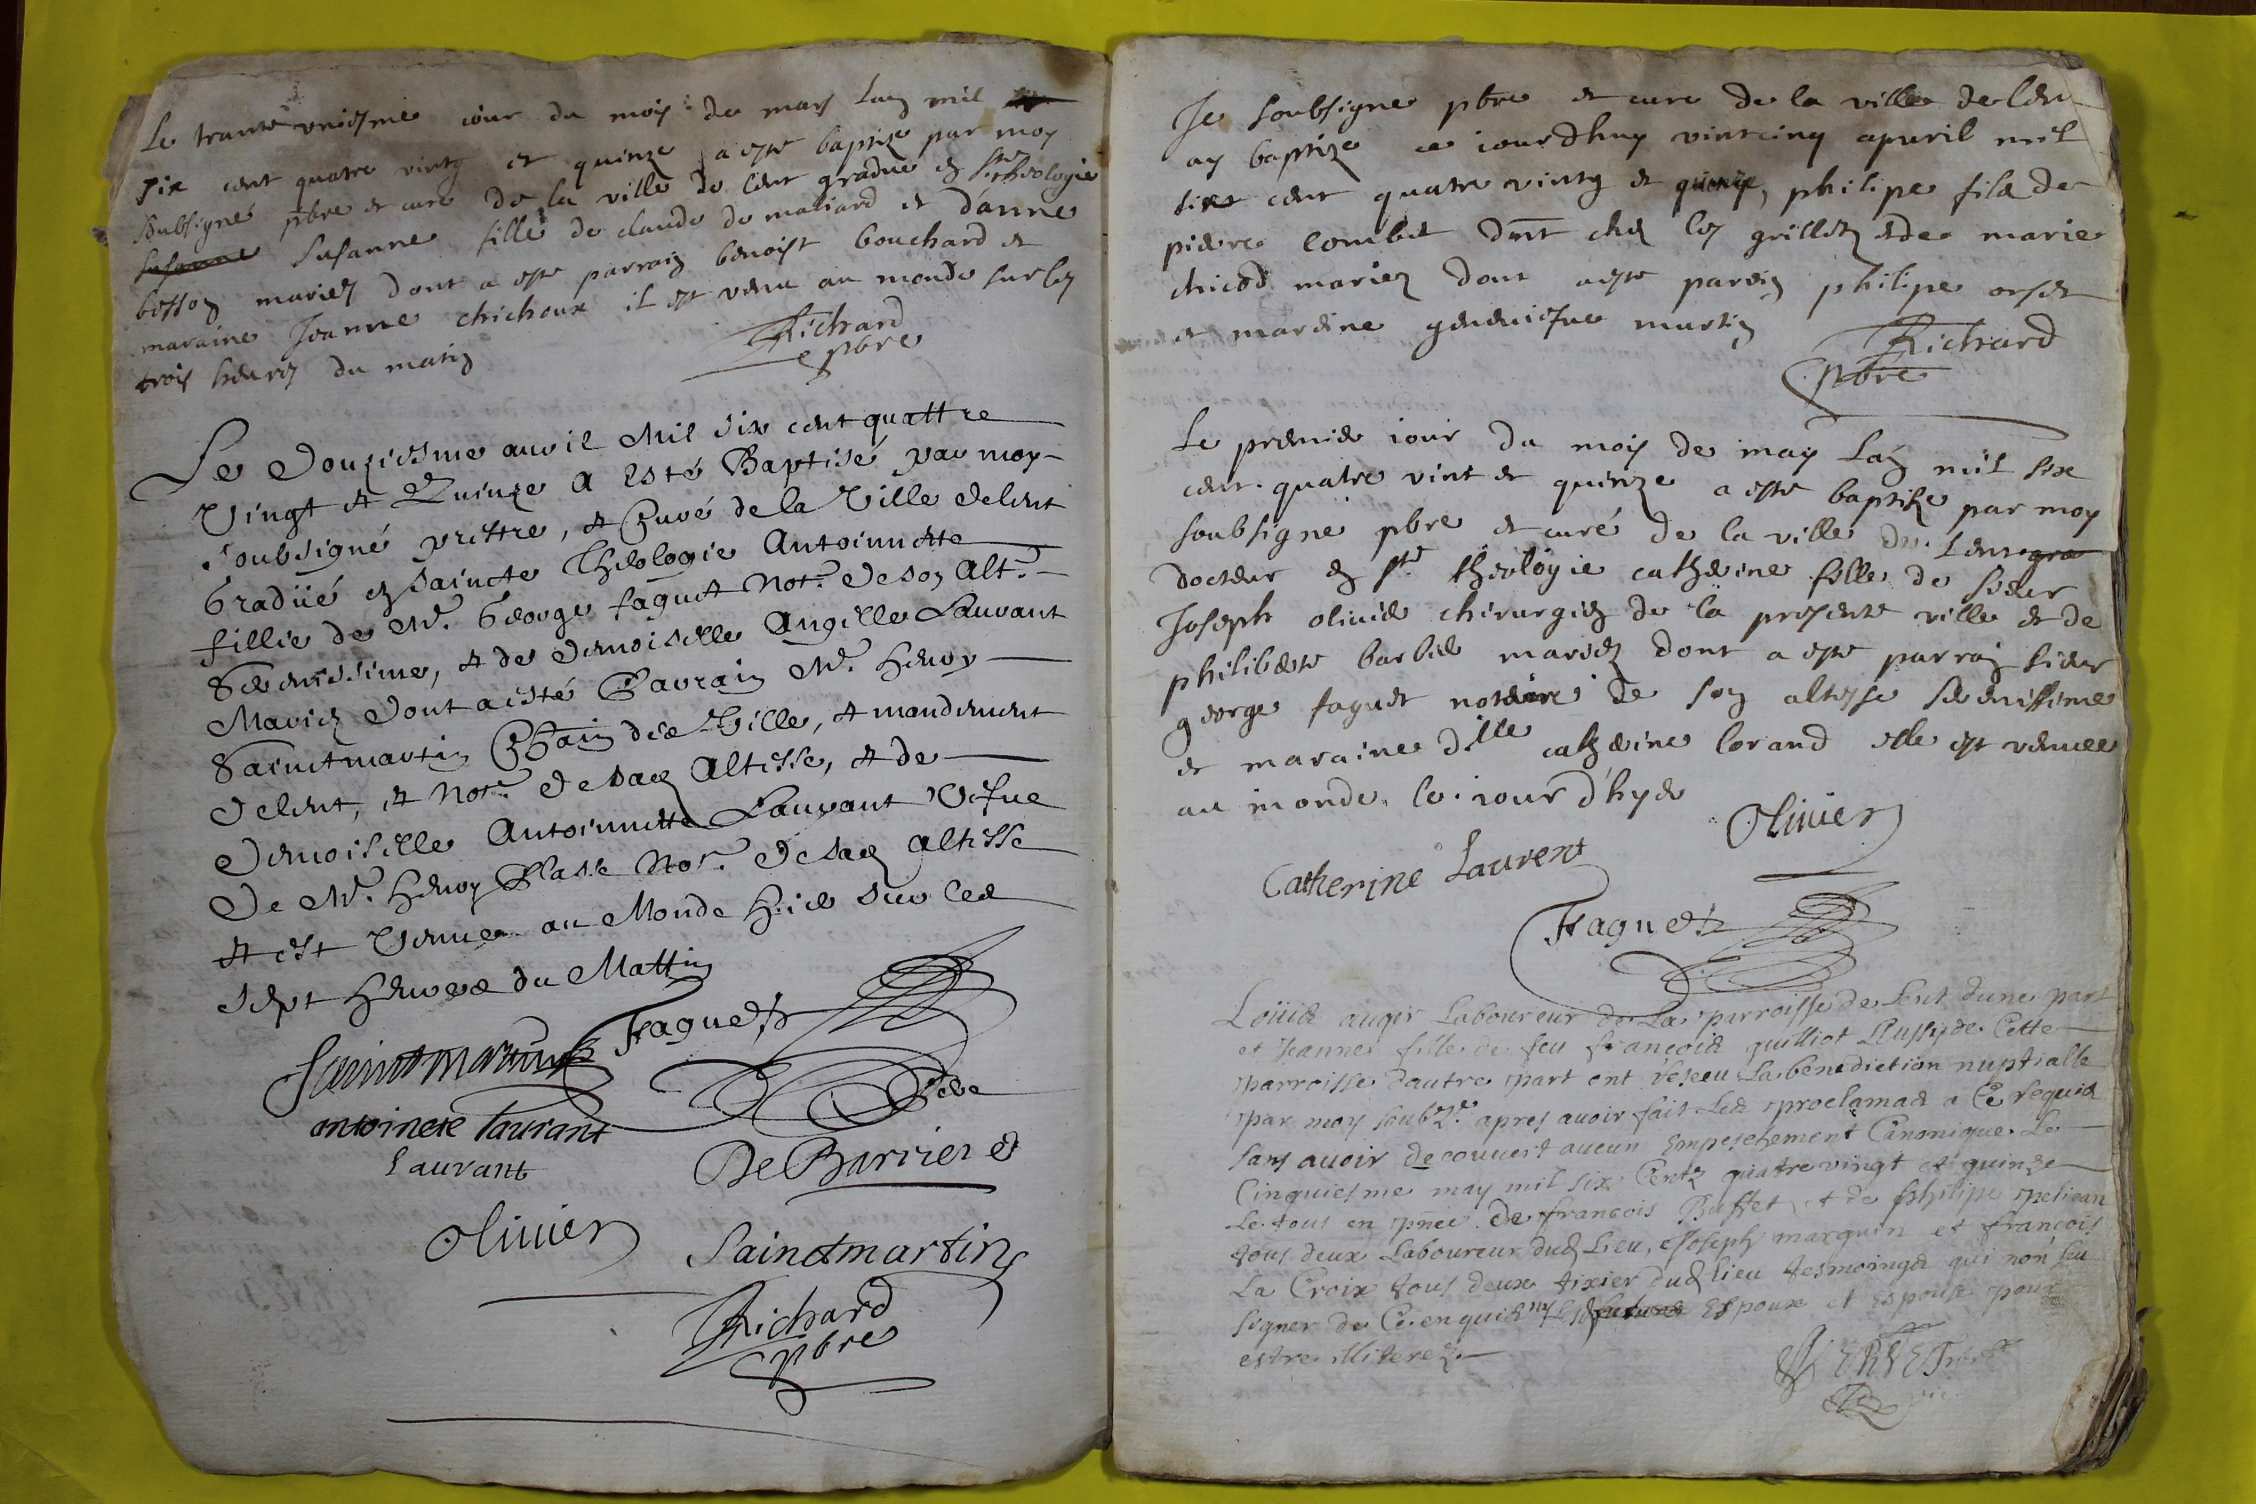 Le trante uniesme iour du mois de mars lan mil
six cent quatre vintg et quinze a este baptize par moy
soubsigné pbre et curé de la ville de lent gradué en ste theologie
susanne susanne fille de claude de maliard et d'anne
besson mariez dont a este parrain benoist bouchard et
maraine Jeanne chichoux il est venu au monde sur les
trois heures du matin
Richard
pbre
Le Douziesme auril Mil six cent quattre
Vingt et Quinze a Esté Baptisé par moy
soubsigné prestre, et Curé de la Ville de lent
Gradüé en saincte Theologie Antoinette
fillie de Mr. George faguet Notre. de son Alt.
Serenissime, et de Demoiselle Angille Laurant
Mariez Dont a esté Parrain Mr. Henry
Sainctmartin Chain de Ville, et mandement
de lent, et Notre. de sad Altesse, et de
Demoiselle Antoinette Laurant Vefue
De Mr. Henry Passe Notre. de sad Altesse
et est Venue au Monde Hier sur les
sept Heures du Mattin
Sainctmartin Faguet
antoinete laurant
Laurant De Barrier
Olivier Sainctmartin
Richard
pbre
Je soubsigne pbre et cure de la ville de lent
ay baptize ce iourdhuy vintcinq apuril mil
sixt cent quatre vintg et quinze, philipe fils de
pierre combet dmt ches les grilletz et de marie
chicod mariez dont a este parein philipe orset
et mareine geneniefue martin
Richard
pbre
Le premier iour du mois de may lan mil six
cent quatre vint et quinze a este baptize par moy
soubsigne pbre et curé de la ville de lent gra
docteur en ste theologie catherine fille de sieur
Joseph oliuier chirurgien de la presente ville et de
philiberte barbier mariez dont a este parrain sieur
george faguet notaire de son altesse serenissime
et maraine dlle catherine lorand elle est venuee
au monde le iour d'hyer
Catherine Laurent Olivier
Faguet
Loüis augir Laboureur de La parroisse de Lent dune part
et Jeanne fille de feu françois guilliot Aussy de Cette
parroisse dautre part ont reseu La benediction nuptialle
par moy soubz.e apres auoir fait Les proclamas a Ce requis
sans auoir de couuert aucun Empeschement Canonique. Le
Cinquiesme may mil six Centz quatre vingt et quinze
Le tous en pnce de francois Buffet et de philipe pelican
tous deux Laboureur dud Lieu, Joseph marguin et francois
La Croix tous deux tixier dud lieu tesmoings qui non sceu
signer de Ce enquis ny Lesd futures Espoux et Espouse pour
estre illiterez